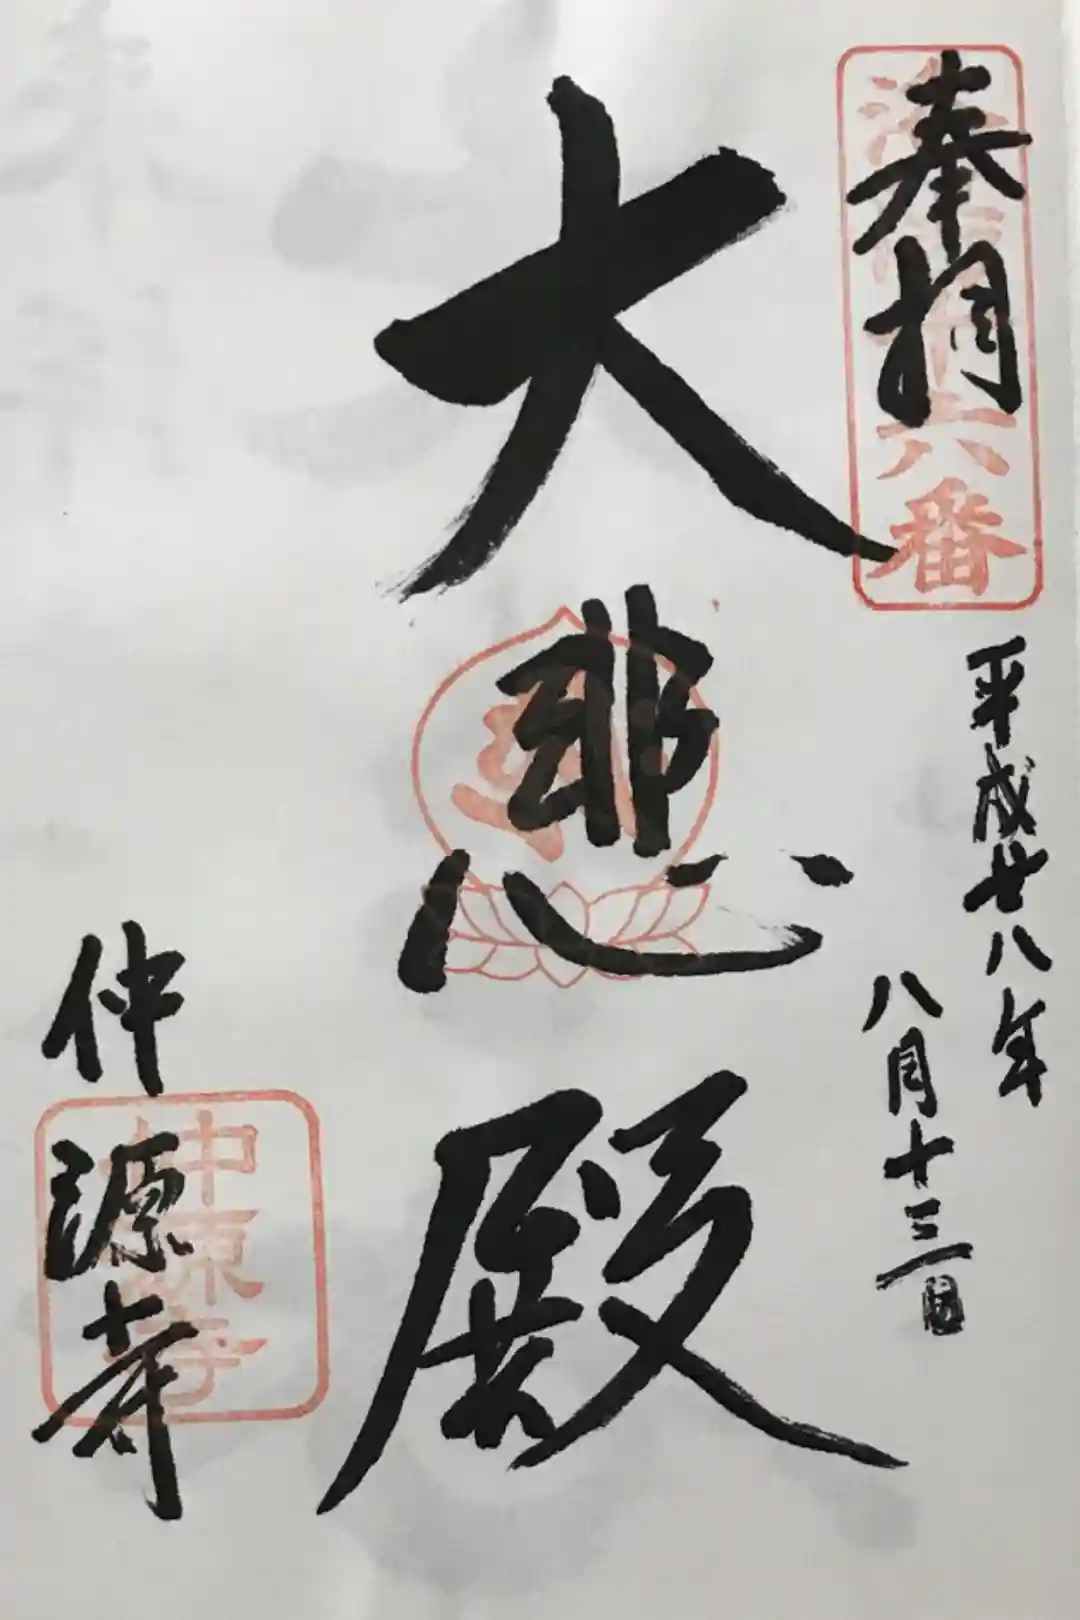 奉拝
平成廿八年
八月十三日
大悲殿
仲源寺
六番